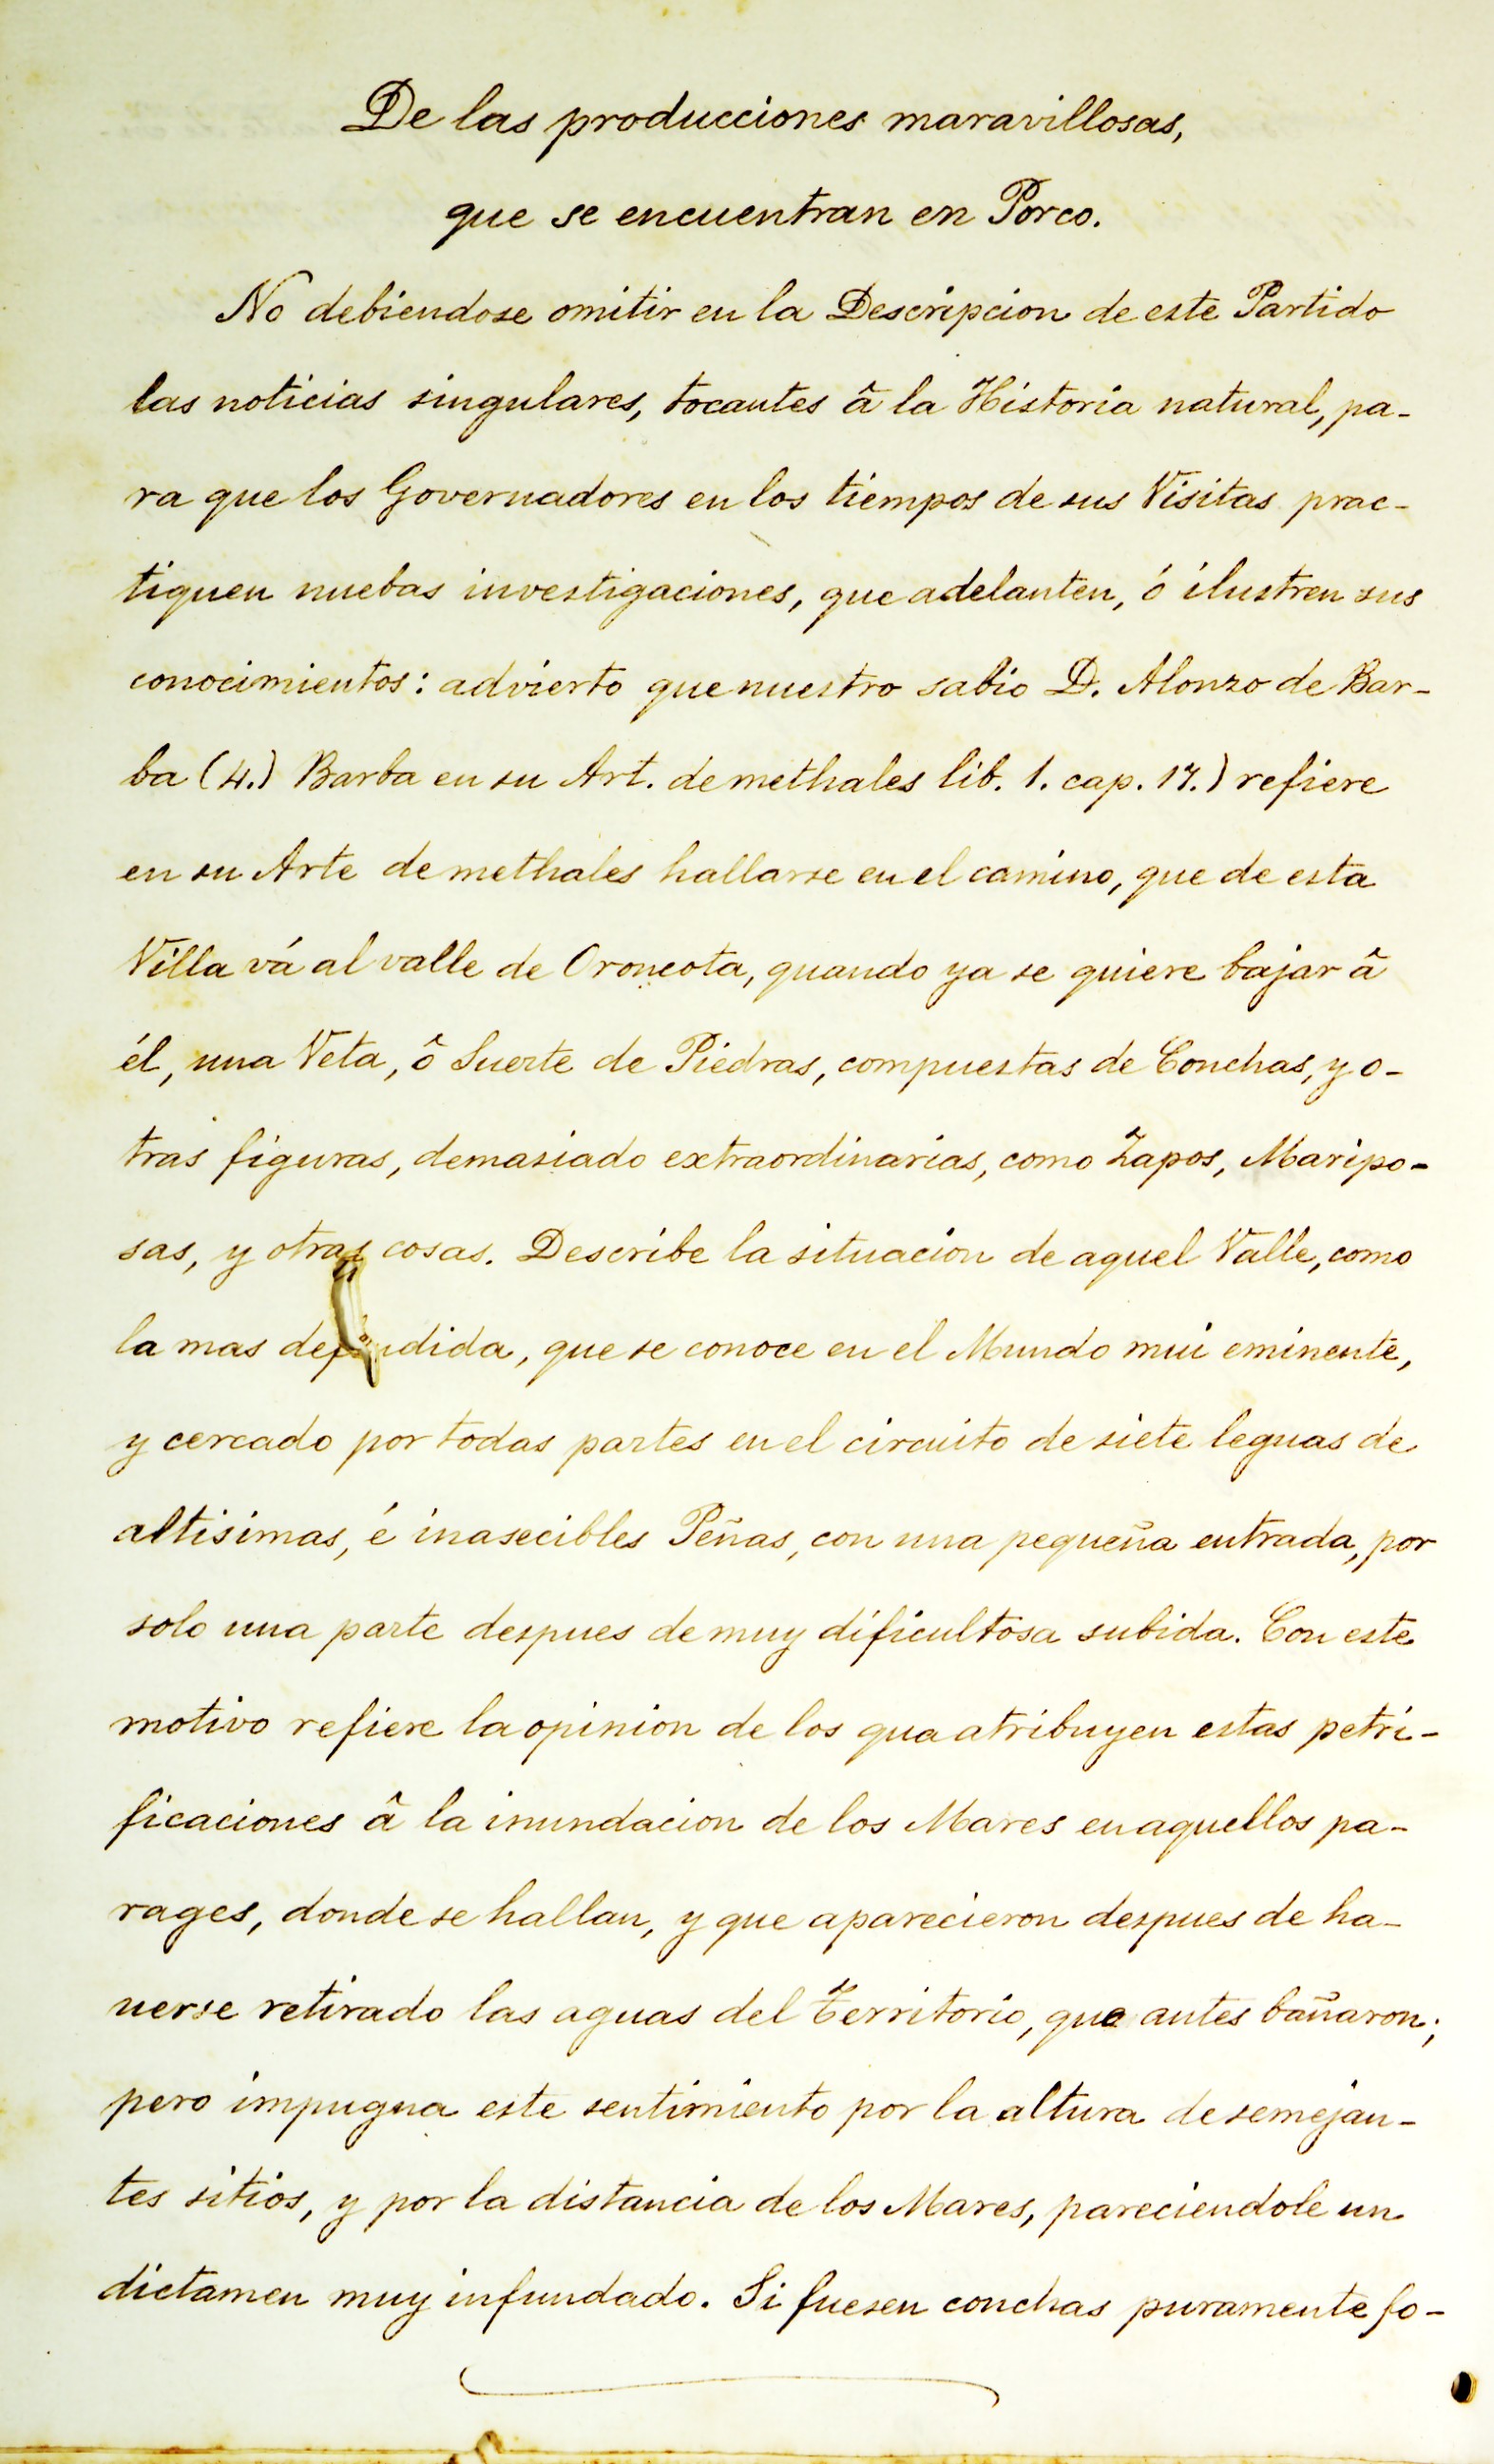 De las producciones maravillosas,
que se encuentran en Porco.
No debiendose omitir en la Descripcion de este Partido
las noticias singulares, tocantes â la Historia natural, pa-
ra que los Governadores en los tiempos de sus Visitas prac-
tiquen nuebas investigaciones, que adelanten, ó ilustren sus
conocimientos: advierto que nuestro sabio D. Alonzo de Bar-
ba (4.) Barba en su Art. de methales lib. 1. cap. 17.) refiere
en su Arte de methales hallarse en el camino, que de esta
Villa vá al valle de Oroncota, quando ya se quiere bajar â
él, una Veta, ô Suerte de Piedras, compuestas de Conchas, y o-
tras figuras, demasiado extraordinarias, como Zapos, Maripo-
sas, y otras cosas. Describe la situacion de aquel Valle, como
la mas defendida, que se conoce en el Mundo mui eminente,
y cercado por todas partes en el circuito de siete leguas de
altisimas, é inasecibles Peñas, con una pequeña entrada, por
solo una parte despues de muy dificultosa subida. Con este
motivo refiere la opinion de los qua atribuyen estas petri-
ficaciones â la inundacion de los Mares en aquellos pa-
rages, donde se hallan, y que aparecieron despues de ha-
verse retirado las aguas del Territorio, que antes bañaron;
pero impugna este sentimiento por la altura de semejan-
tes sitios, y por la distancia de los Mares, pareciendole un
dictamen muy infundado. Si fuesen conchas puramente fo-